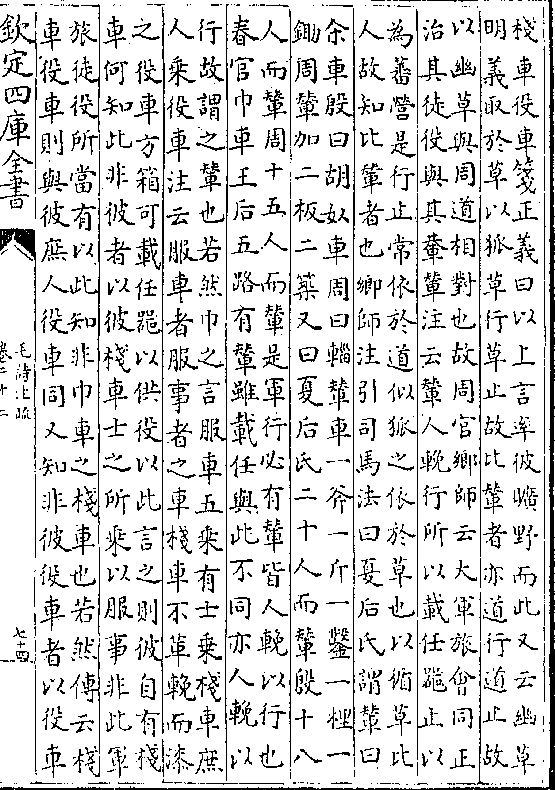 棧車役車箋正義曰以上言率彼曠野而此又云幽草
明義取於草以狐草行草止故比輦者亦道行道止故
以幽草與周道相對也故周官鄉師云大軍旅會同正
治其徒役與其輂輦注云輦人輓行所以載任器止以
為蕃營是行止常依於道似狐之依於草也以循草此
人故知比輦者也鄉師注引司馬法曰夏后氏謂輦曰
余車殷曰胡奴車周曰輜輦車一斧一斤一鑿一梩一
鋤周輦加二板二築又曰夏后氏二十人而輦殷十八
人而輦周十五人而輦是軍行必有輦皆人輓以行也
春官巾車王后五路有輦雖載任與此不同亦人輓以
行故謂之輦也若然巾之言服車五乘有士乘棧車庶
人乘役車注云服車者服事者之車棧車不革輓而漆
之役車方箱可載任器以供役以此言之則彼自有棧
車何知此非彼者以彼棧車士之所乘以服事非此軍
旅徒役所當有以此知非巾車之棧車也若然傳云棧
車役車則與彼庶人役車同又知非彼役車者以役車
欽定四庫全書
毛詩注疏
卷二十二
七十四